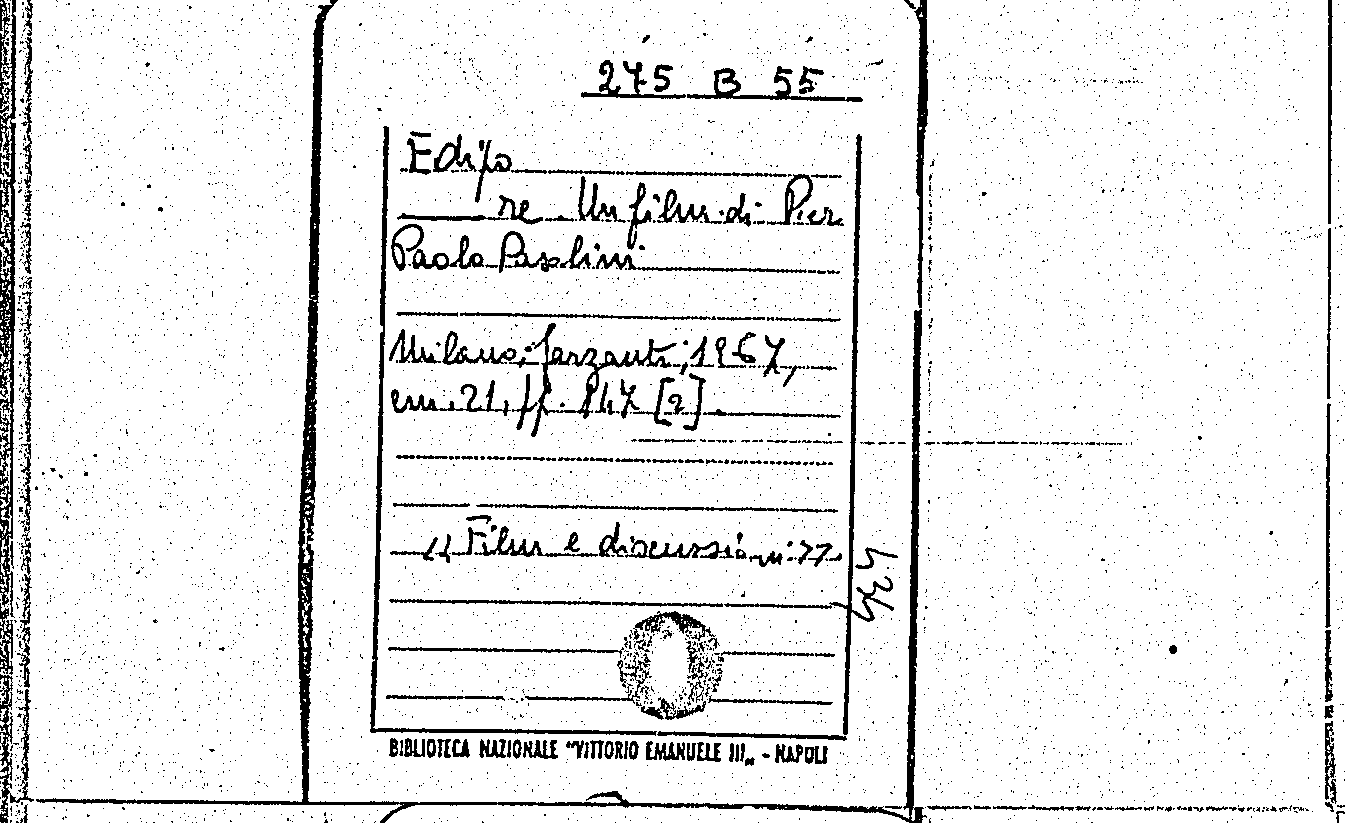 275 B 55
Edipo
——— re Un film di Pier
Paolo Pasolini
Milano, Garzanti, 1967,
cm. 21, pp. 147 [2].
« Film e discussioni »
BIBLIOTECA NAZIONALE "VITTORIO EMANUELE III„ - NAPOLI